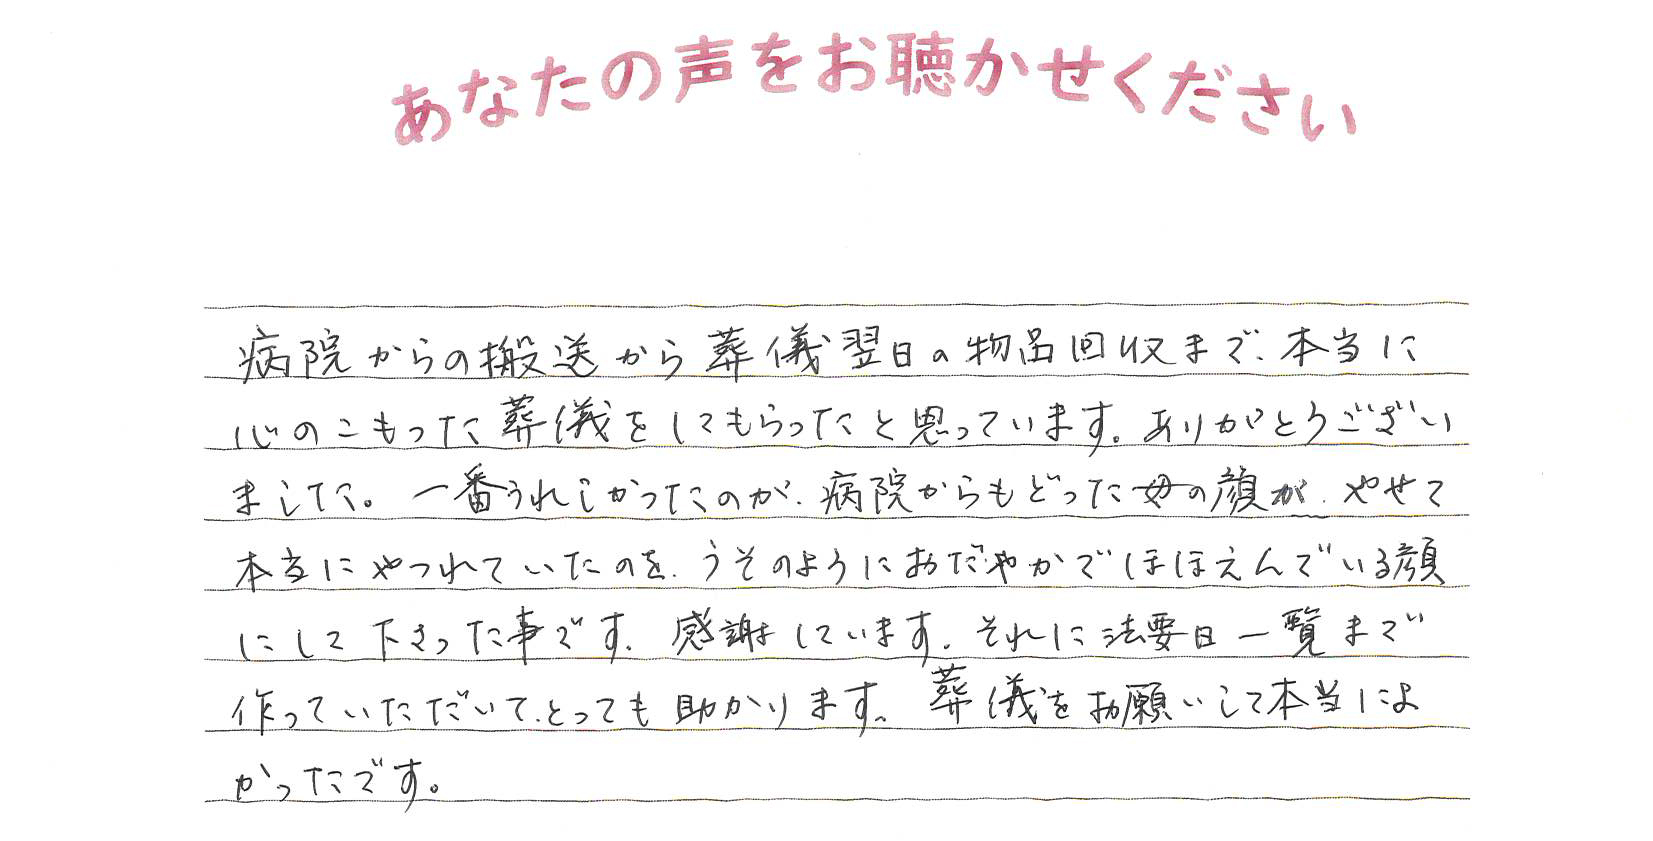 あなたの声をお聴かせください
病院からの搬送から葬儀翌日の物品回収まで、本当に
心のこもった葬儀をしてもらったと思っています。ありがとうござい
ました。一番うれしかったのが、病院からもどった母の顔が、やせて
本当にやつれていたのを、うそのようにおだやかでほほえんでいる顔
にして下さった事です。感謝しています。それに法要日一覧まで
作っていただいて、とっても助かります。葬儀をお願いして本当によ
かったです。